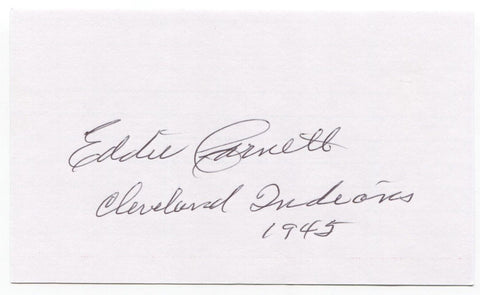 Eddie Carnett
Cleveland Indians
1945